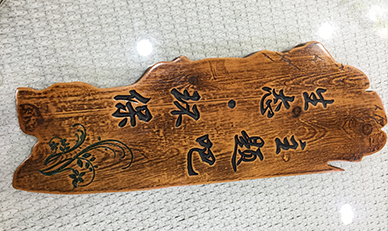 生态·环保
主题吧